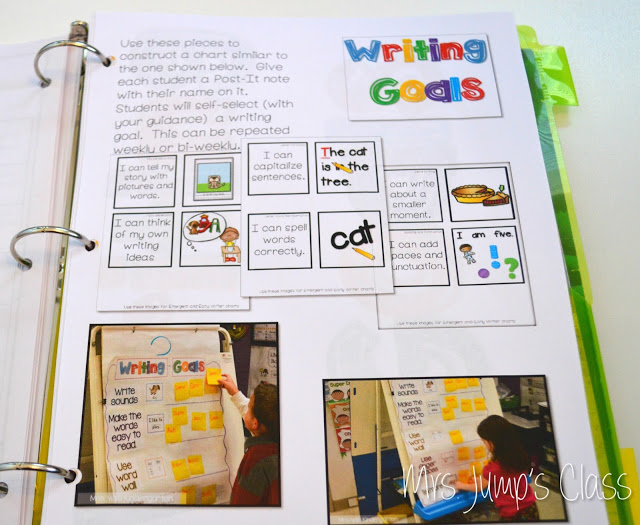 Use these pieces to
construct a chart similar to
the one shown below. Give
each student a Post-It note
with their name on it.
Students will self-select (with
your guidance) a writing
goal. This can be repeated
weekly or bi-weekly.
Writing
Goals
I can tell my
story with
pictures and
words.
I can think
of my own
writing
ideas
I can
capitalize
sentences.
The cat
is in the
tree.
I can spell
words
correctly.
cat
can write
about a
smaller
moment.
I can add
paces and
unctuation.
I am five.
! ?
Use these images for Emergent and Early Writer charts
Use these images for Emergent and Early Writer charts
Writing Goals
Write
sounds
Make the
words
easy to
read.
Use
word
wall
Make the
words
easy to
read
Use
word
wall
Mrs Jump's Class